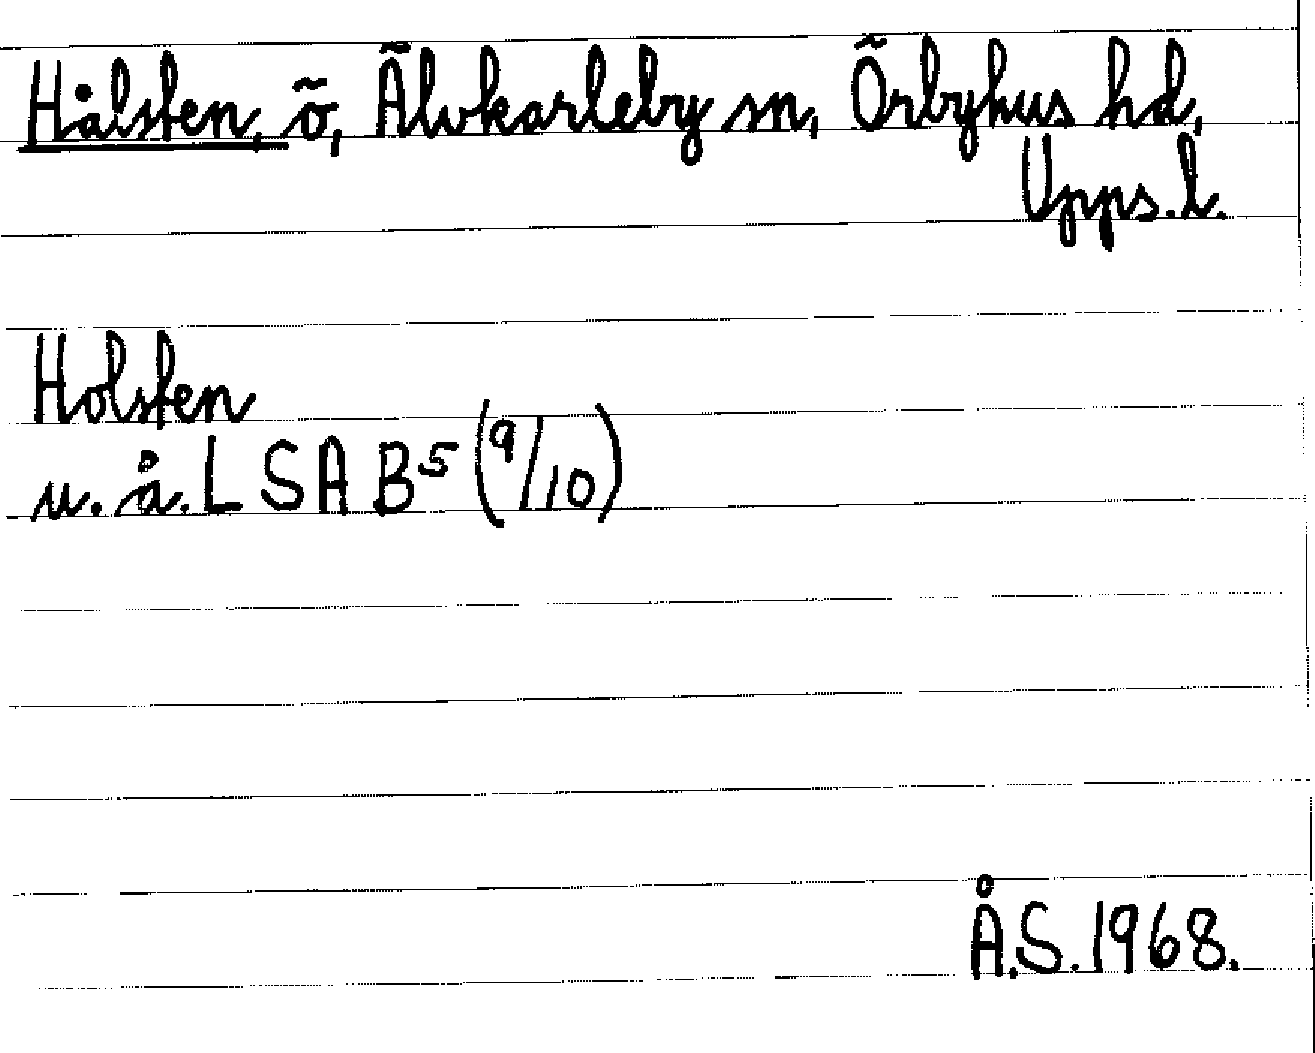 Hålsten, ö, Älvkarleby sn, Örbyhus hd,
Upps.l.
Holsten
u. å. L S A B5 (9/10)
Å.S. 1968.